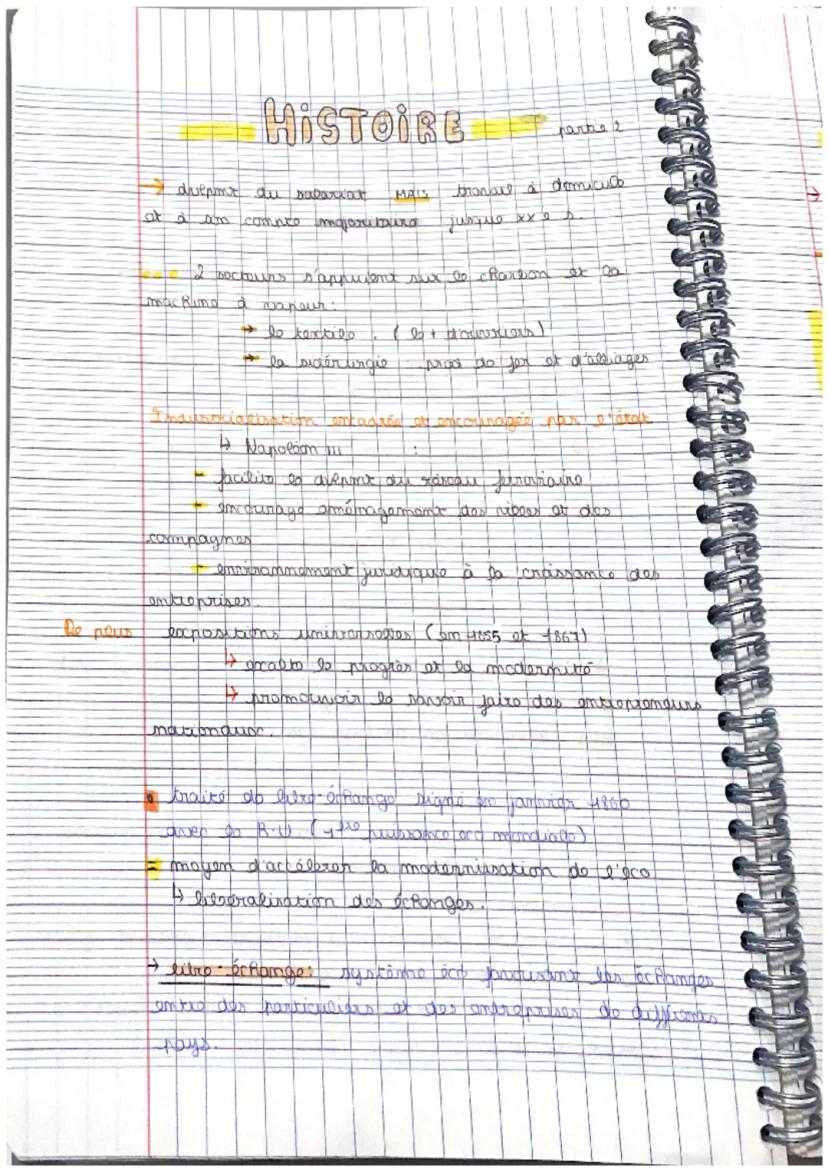 HiSTOiRE partie 2
→ dvlpmt du salariat MAIS travail à domicile
et à son compte majoritaire jusque XX e s.
2 secteurs s'appuient sur le charbon et la
machine à vapeur:
→ le textile. (le + d'ouvriers)
→ la sidérurgie prod de fer et d'alliages
Industrialisation encadrée et encouragée par l'état
↳ Napoléon III :
- facilite le dvlpmt du réseau ferroviaire
- encourage aménagement des villes et des
campagnes
- environnement juridique à la croissance des
entreprises.
De plus expositions universelles (en 1855 et 1867)
↳ exalte le progrès et la modernité
↳ promouvoir le savoir faire des entrepreneurs
nationaux.
• traité de libre-échange signé en janvier 1860
avec le R-U. (1ère puissance éco mondiale)
= moyen d'accélérer la modernisation de l'éco
↳ libéralisation des échanges.
→ libre-échange: système éco favorisant les échanges
entre des particuliers et des entreprises de différents
pays.